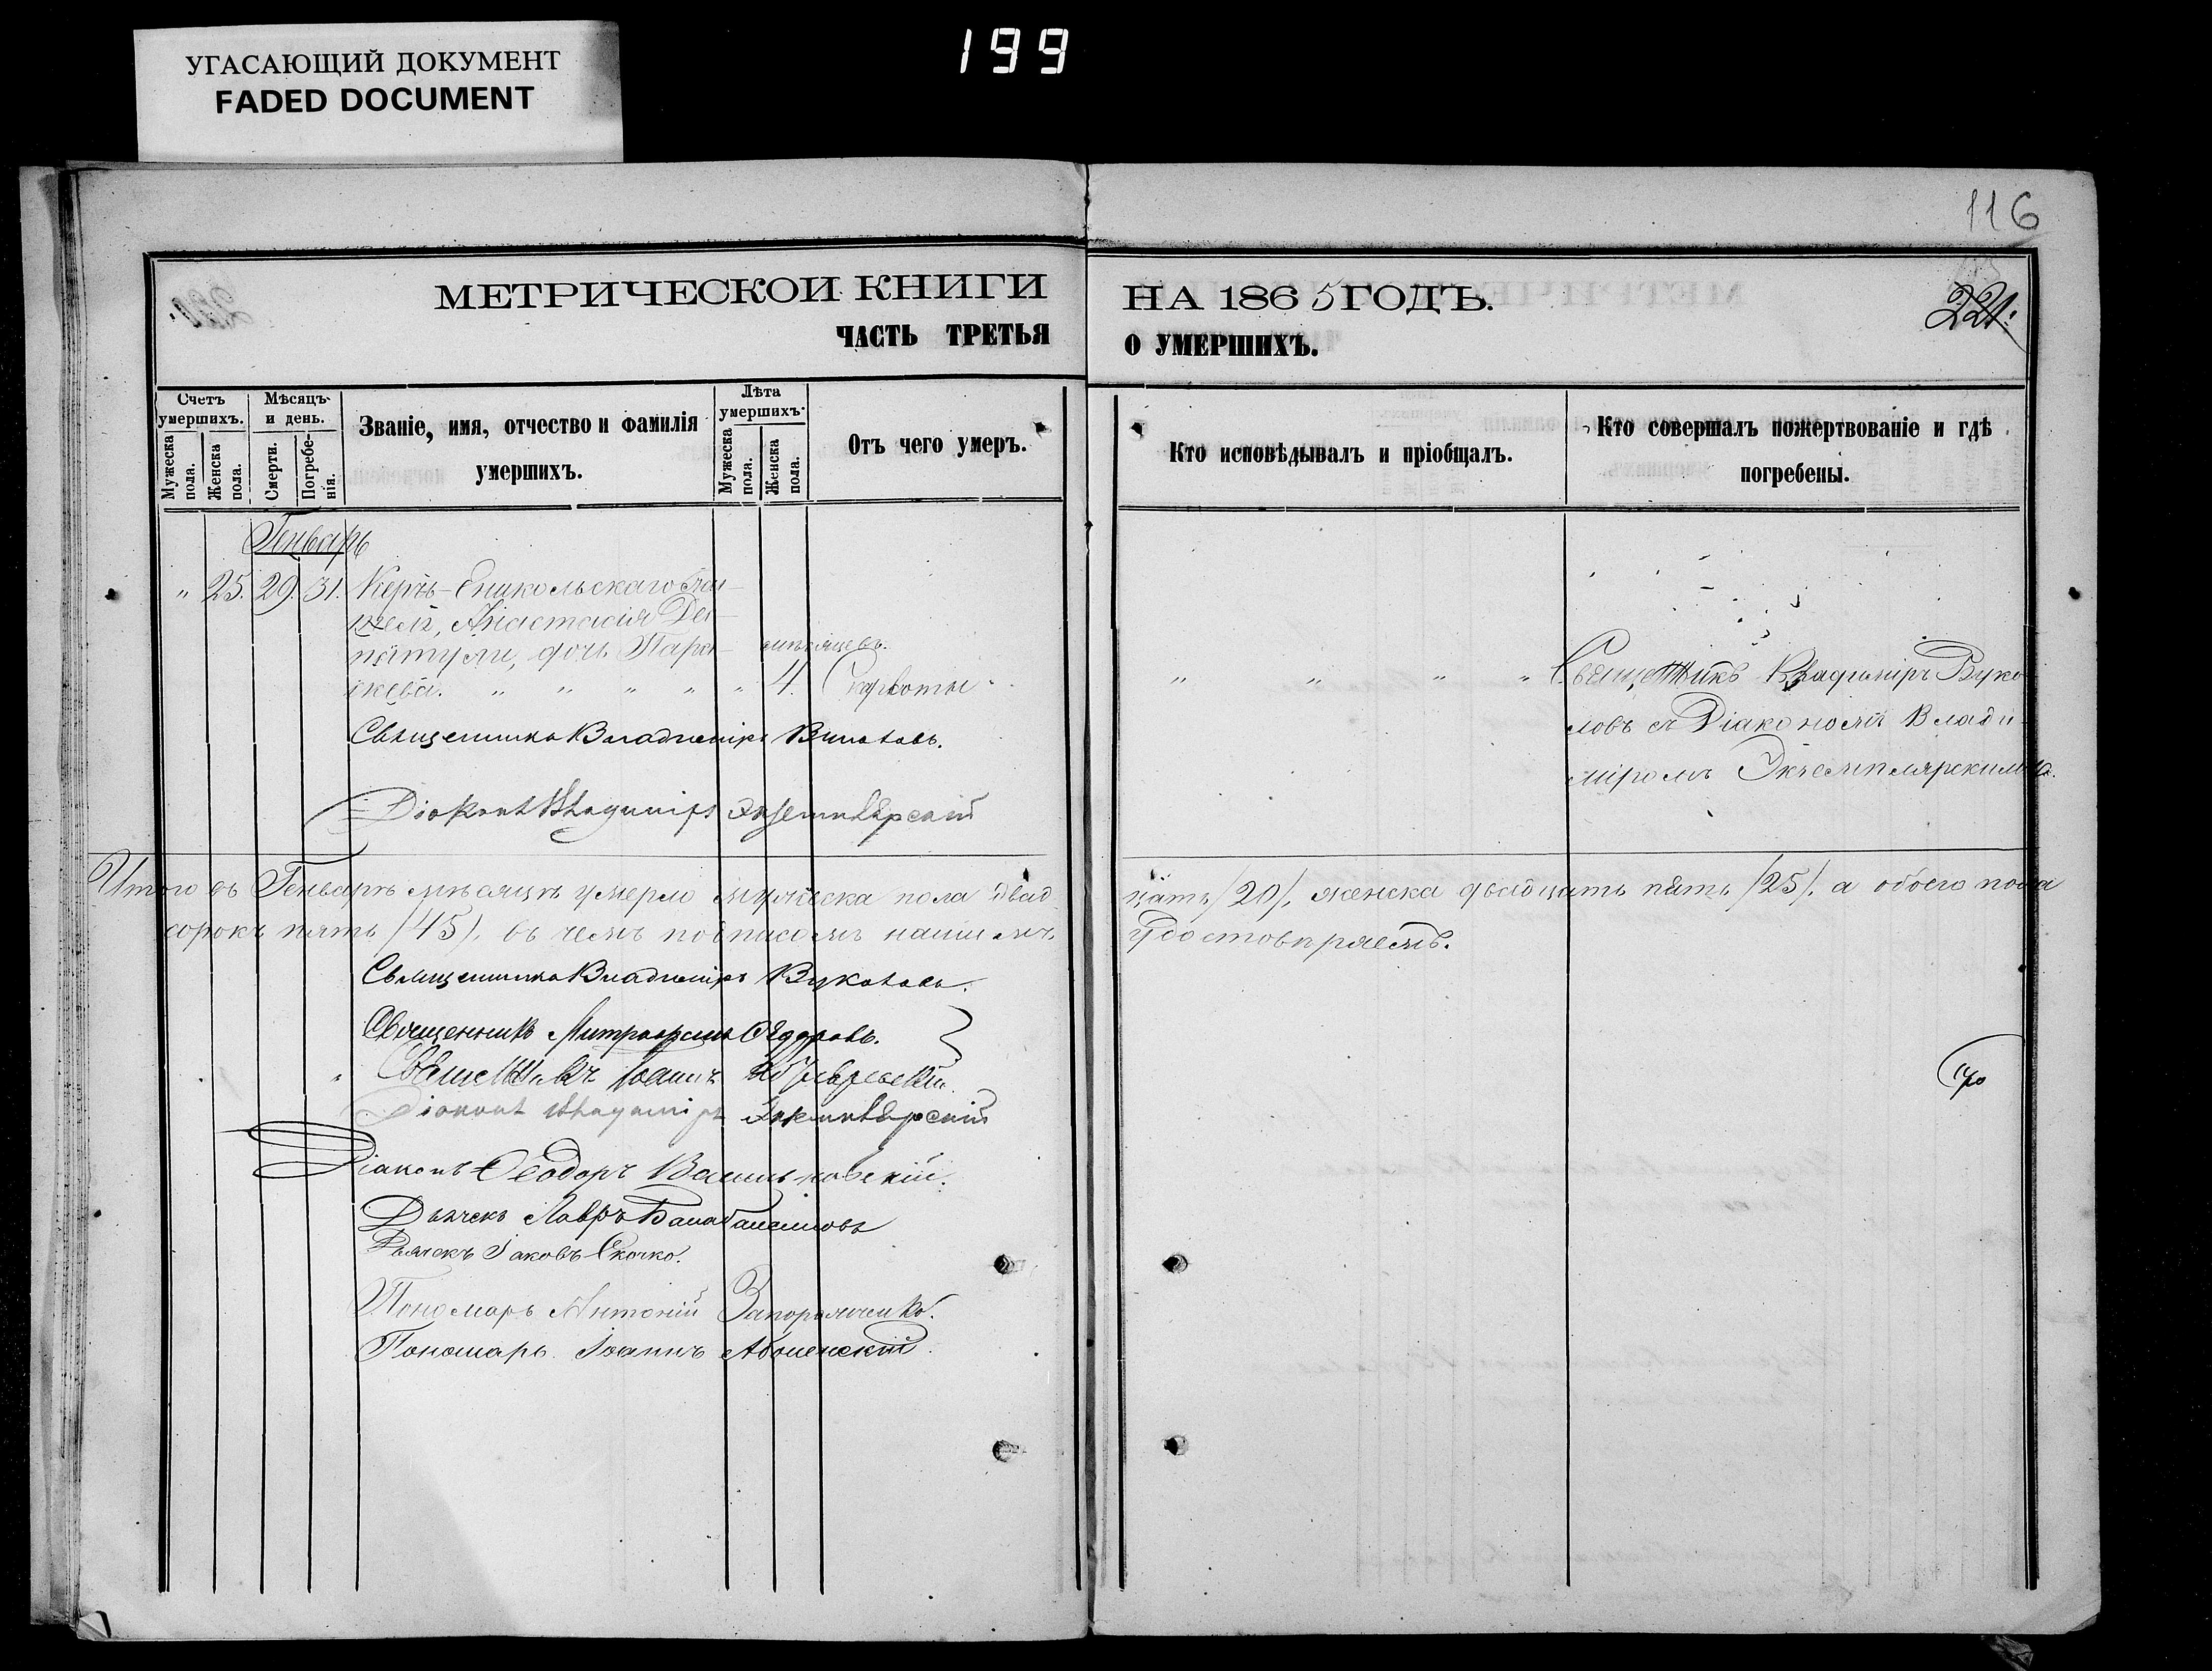 УГАСАЮЩИЙ ДОКУМЕНТ
FADED DOCUMENT
199
116
МЕТРИЧЕСКОЙ КНИГИ НА 1865 ГОДЪ.
221.
ЧАСТЬ ТРЕТЬЯ О УМЕРШИХЪ.
Счетъ умершихъ.
Мужеска пола.
Женска пола.
Мѣсяцъ и день.
Смерти.
Погребенія.
Званіе, имя, отчество и фамилія умершихъ.
Лѣта умершихъ.
Мужеска пола.
Женска пола.
Отъ чего умеръ.
Кто исповѣдывалъ и пріобщалъ.
Кто совершалъ пожертвованіе и гдѣ погребены.
Генварь
" 25. 29. 31. Керчь-Еникольскаго
Анастасія
дочь Пара- мѣсяцевъ.
скева. " " " " " 4. " " " " Священникъ Владиміръ Вуко-
ловъ съ Діакономъ Влади-
міромъ Экземплярскимъ.
Священникъ Владиміръ Вуколовъ.
Діаконъ Владиміръ Экземплярскій
Итого въ Генварѣ мѣсяцѣ умерло мужеска пола двад-
цать /20/, женска двадцать пять /25/, а обоего пола
сорокъ пять /45/, въ чемъ подписомъ нашимъ
удостовѣряемъ.
Священникъ Владиміръ Вуколовъ.
Священникъ Митрофанъ
Священникъ Іоаннъ
Діаконъ Владиміръ Экземплярскій
Діаконъ Ѳеодоръ Васильковскій.
Дьячекъ Лавръ
Дьячекъ Іаковъ Скочко.
Пономарь Антоній Запорожченко.
Пономарь Іоаннъ